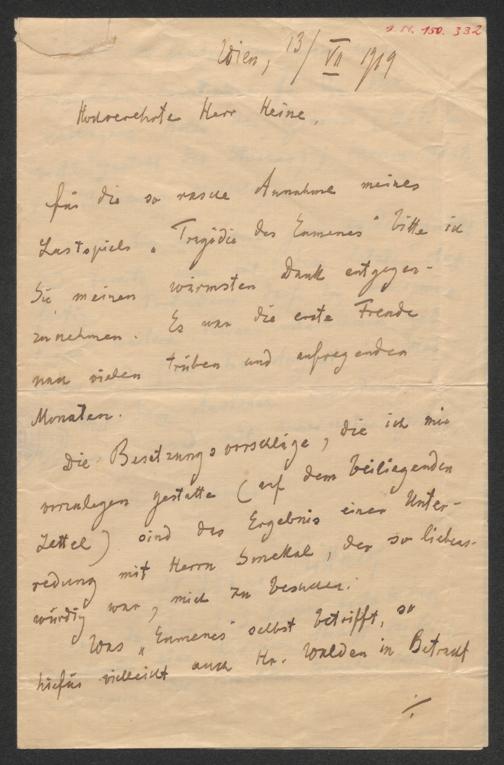 J.N. 150.332
Wien, 13/VII 1919
Hochverehrter Herr Heine,
für die so rasche Annahme meines
Lustspiels „Tragödie des Eumenes" bitte ich
Sie meinen wärmsten Dank entgegen-
zunehmen. Es war die erste Freude
nach vielen trüben und aufregenden
Monaten.
Die Besetzungsvorschläge, die ich mir
vorzulegen gestatte (auf dem beiliegenden
Zettel) sind das Ergebnis einer Unter-
redung mit Herrn Smekal, der so liebens-
würdig war, mich zu besuchen.
Was „Eumenes" selbst betrifft, so
hiefür vielleicht auch Hr. Walden in Betracht
./.